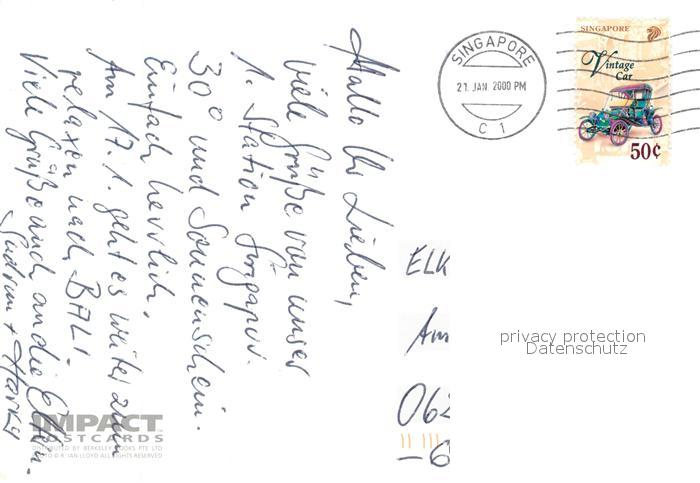 Hallo Ihr Lieben,
viele Grüße von unser
1. Station Singapur.
30° und Sonnenschein.
Einfach herrlich.
Am 17.1. geht es weiter zum
relaxen nach BALI.
Viele Grüße auch an die Eltern.
Gudrun + Harry
SINGAPORE
21 JAN 2000 PM
C 1
SINGAPORE
Vintage
Car
50¢
ELK
Am
062
-6
privacy protection
Datenschutz
IMPACT
POSTCARDS
DISTRIBUTED BY BERKELEY BOOKS PTE LTD
PHOTO © R. IAN LLOYD ALL RIGHTS RESERVED